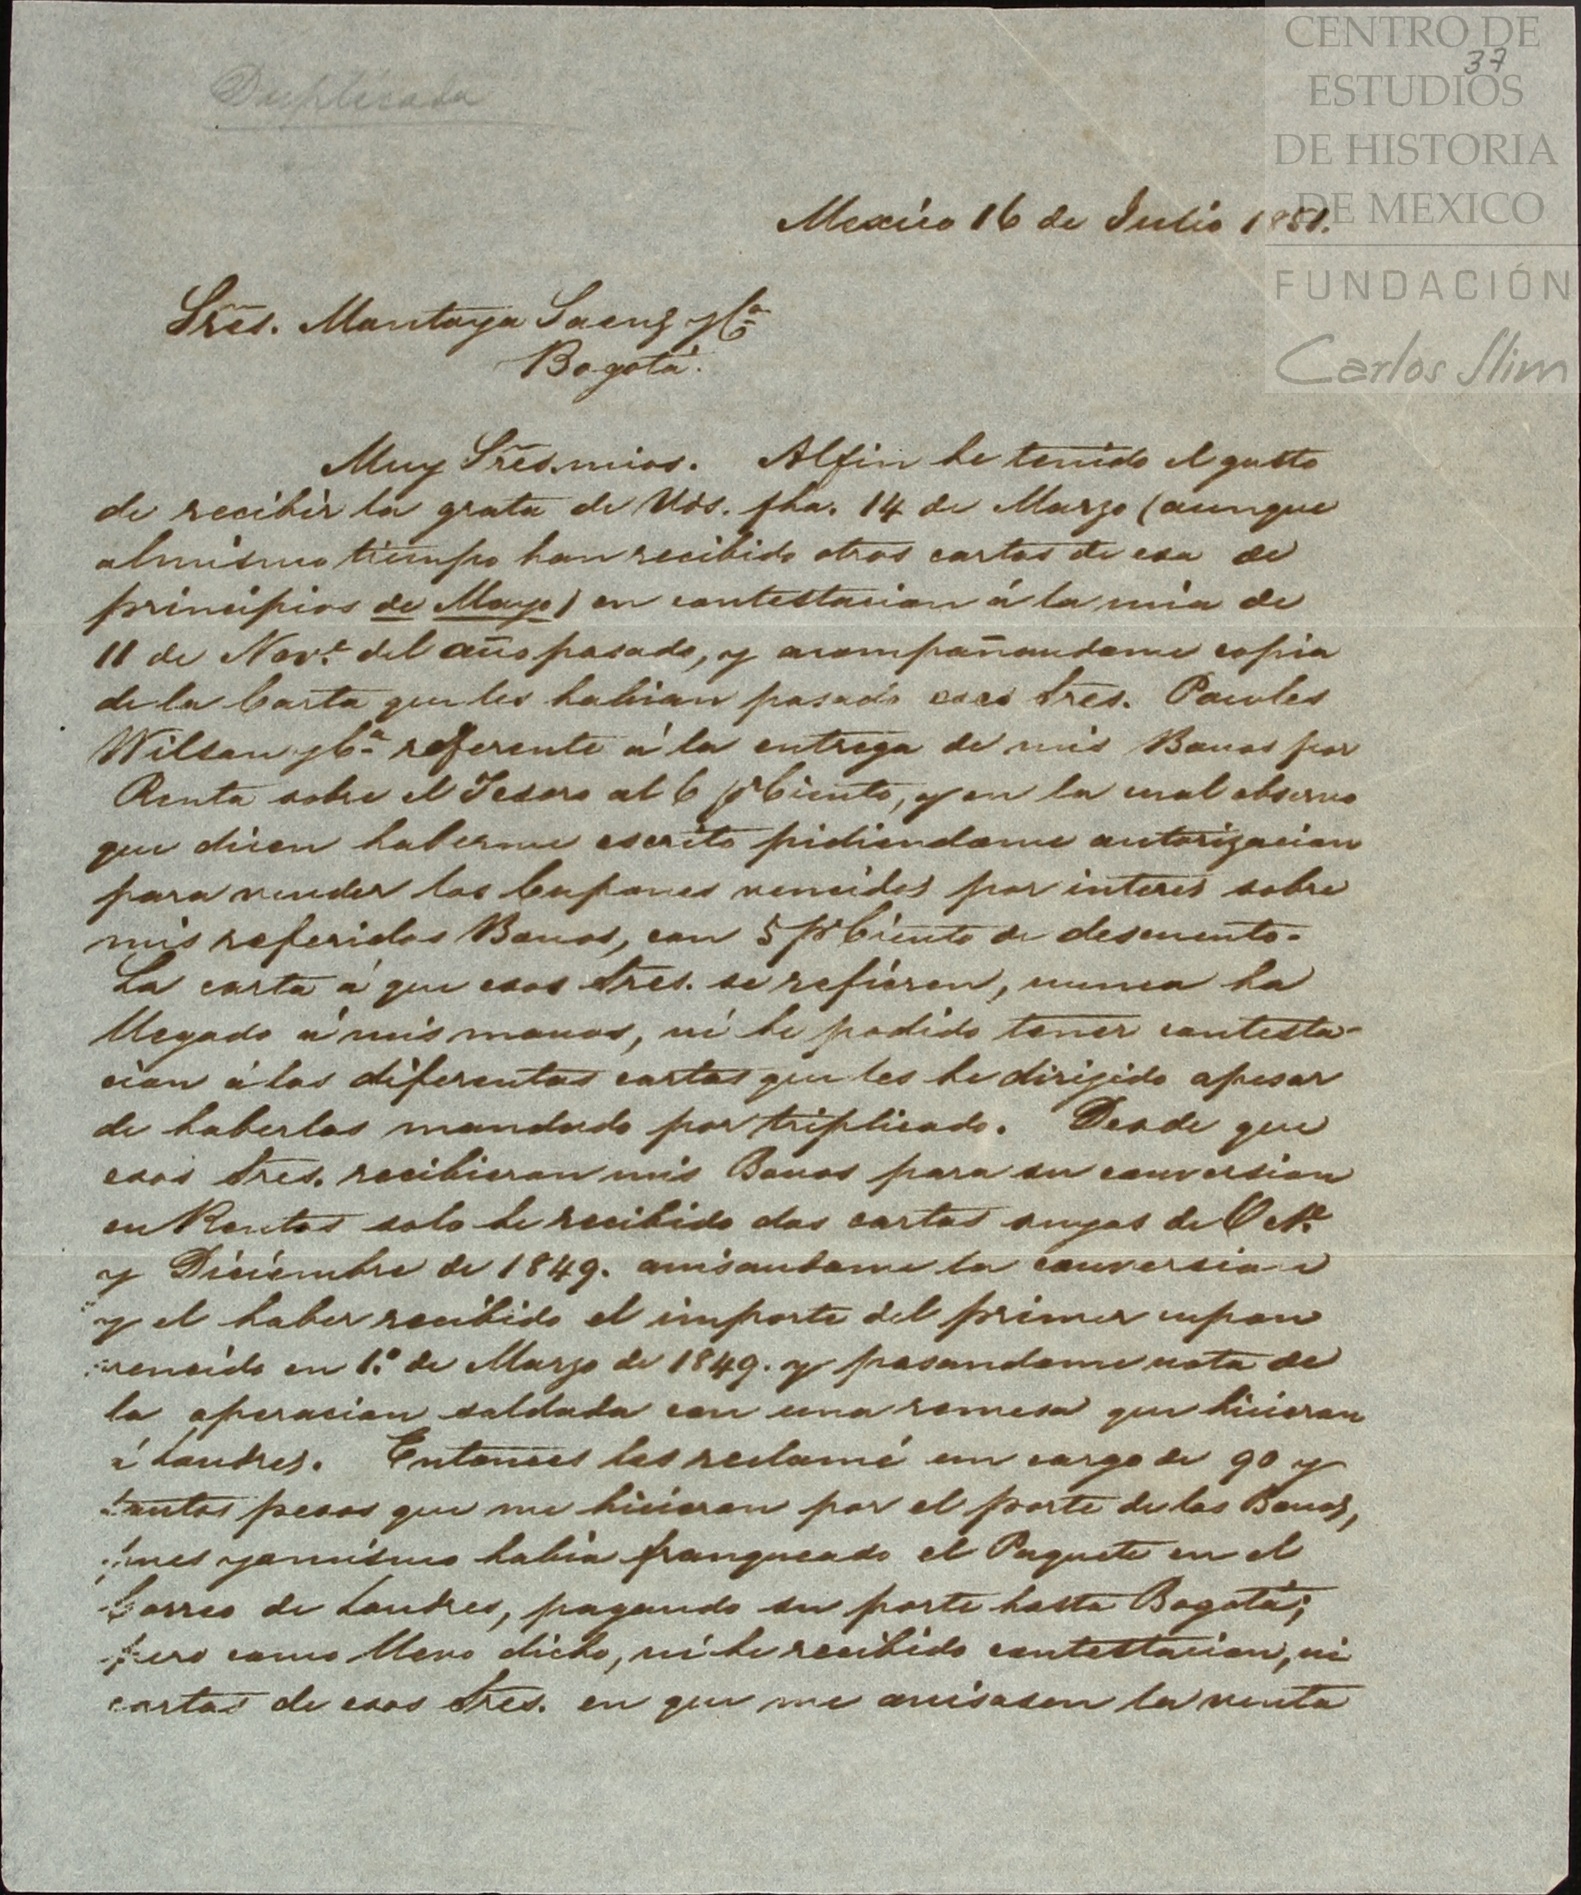 CENTRO DE
ESTUDIOS
DE HISTORIA
DE MEXICO
FUNDACIÓN
Carlos Slim
37
Duplicada
Mexico 16 de Julio 1851.
Sres. Montoya Saenz y Cª
Bogotá.
Muy Sres. mios. Alfin he tenido el gusto
de recibir la grata de Uds. fha. 14 de Marzo (aunque
almismo tiempo han recibido otros cartas de esa de
principios de Mayo) en contestacion á la mia de
11 de Nove. del año pasado, y acompañandome copia
de la Carta que les habian pasado esos Sres. Powles
Wilson y Cª referente á la entrega de mis Bonos por
Renta sobre el Tesoro al 6 pr Ciento, y en la cual observo
que dicen haberme escrito pidiendome autorizacion
para vender los Cupones vencidos por interes sobre
mis referidos Bonos, con 5 pr Ciento de descuento.
La carta á que esos Sres. se refieren, nunca ha
llegado á mis manos, ni he podido tener contesta-
cion á las diferentas cartas que les he dirigido apesar
de haberlas mandado por triplicado. Desde que
esos Sres. recibieron mis Bonos para su conversion
en Rentas solo he recibido dos cartas suyas de Octe.
y Diciembre de 1849. avisandome la conversion
y el haber recibido el importe del primer cupon
vencido en 1.º de Marzo de 1849. y pasandome nota de
la operacion saldada con una remesa que hicieron
á Londres. Entonces les reclamé un cargo de 90 y
tantos pesos que me hicieron por el porte de los Bonos,
pues yomismo habia franqueado el Paquete en el
Correo de Londres, pagando su porte hasta Bogotá;
pero como llevo dicho, ni he recibido contestacion, ni
cartas de esos Sres. en que me avisasen la venta